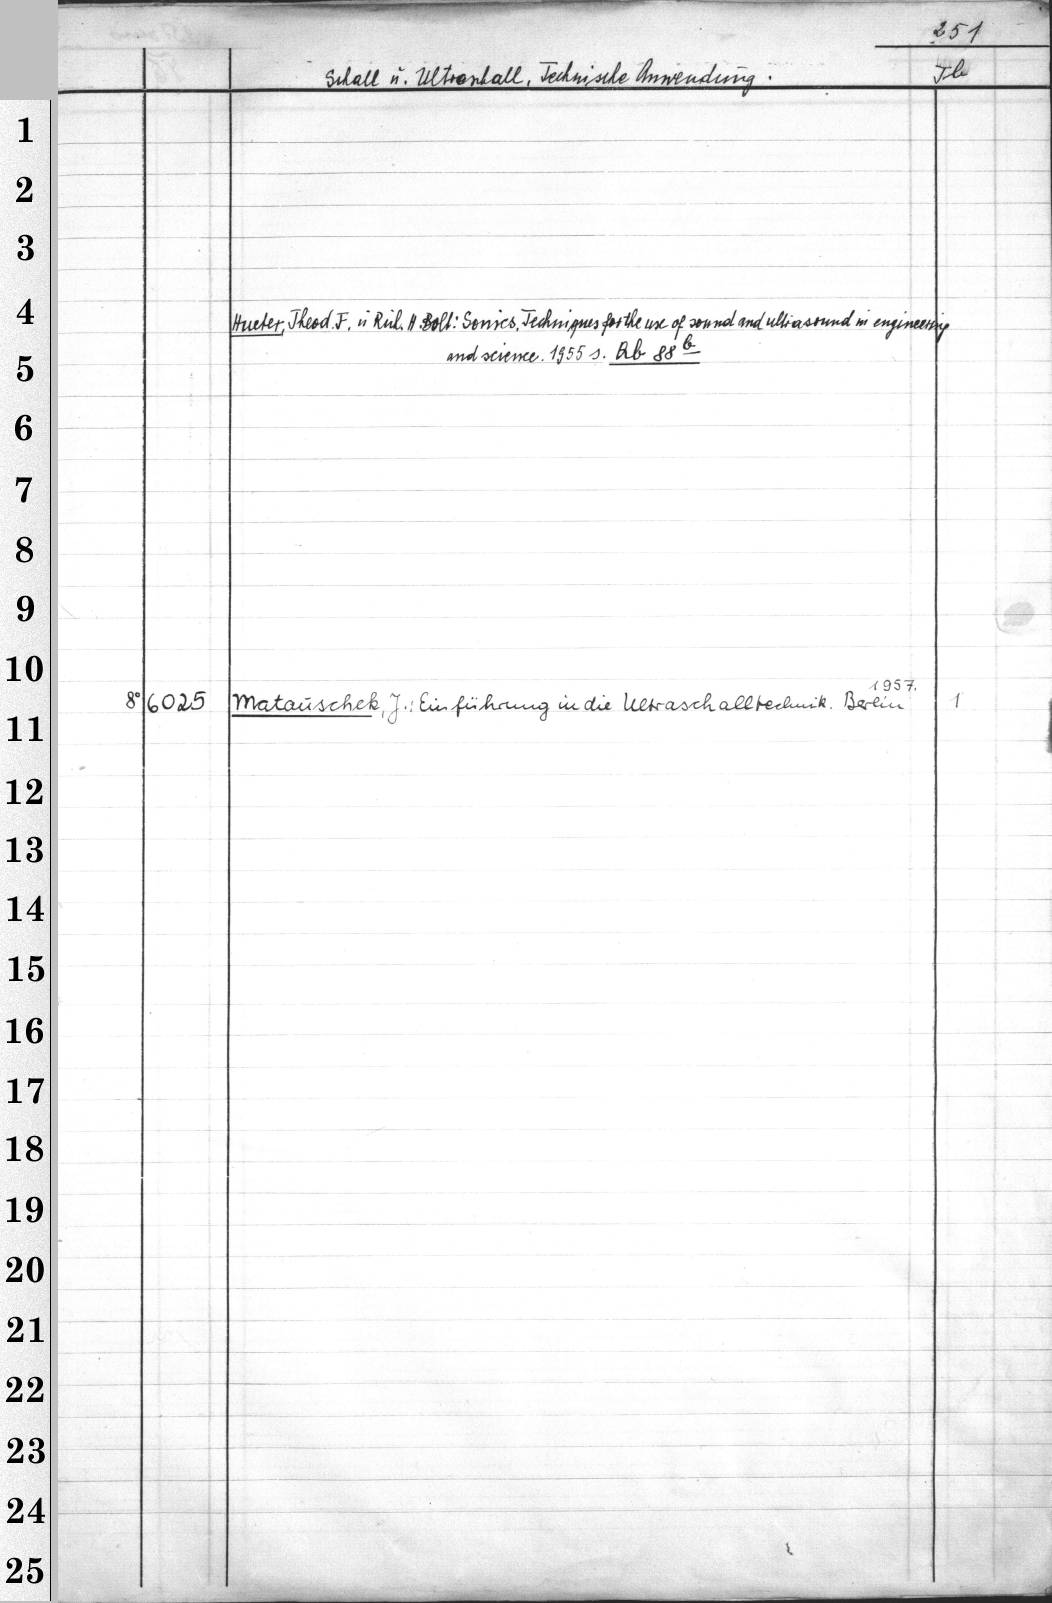 251
Schall u. Ultraschall, Technische Anwendung. Tb
1
2
3
4
Hueter, Theod. F. u Rich. H. Bolt: Sonics, Techniques for the use of sound and ultrasound in engineering
and science. 1955 s. Rb 88 b
5
6
7
8
9
10
8° 6025 Matauschek, J.: Einführung in die Ultraschalltechnik. Berlin 1957. 1
11
12
13
14
15
16
17
18
19
20
21
22
23
24
25